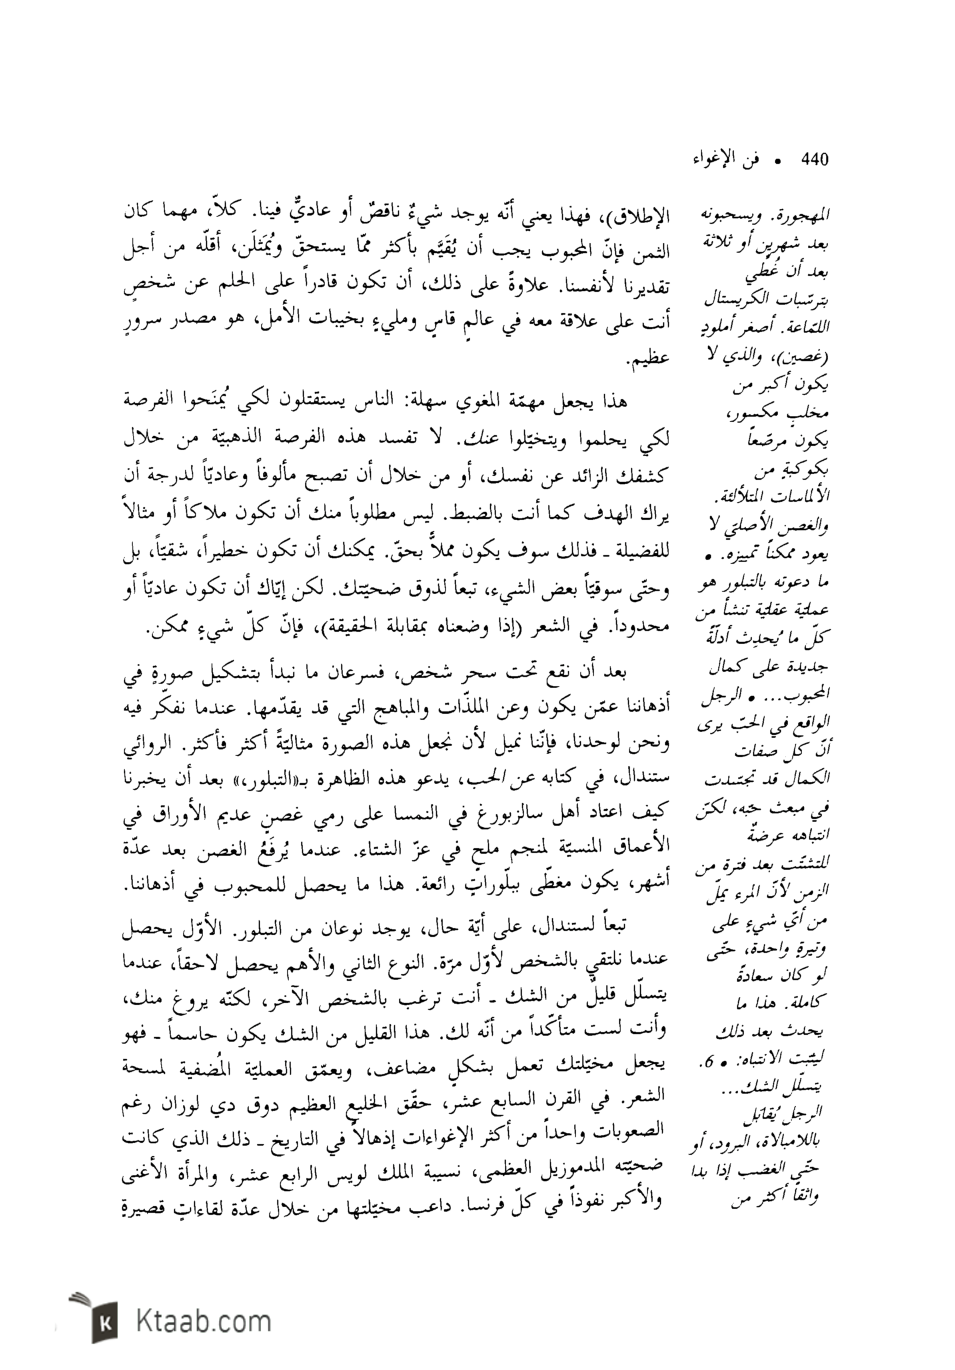 440 • فن الإغواء
الإطلاق)، فهذا يعني أنّه يوجد شيءٌ ناقصٌ أو عاديٌّ فينا. كلاّ، مهما كان
الثمن فإنّ المحبوب يجب أن يُقَيَّم بأكثر ممّا يستحقّ ويُمَثلَن، أقلّه من أجل
تقديرنا لأنفسنا. علاوةً على ذلك، أن تكون قادراً على الحلم عن شخصٍ
أنت على علاقة معه في عالمٍ قاسٍ ومليءٍ بخيبات الأمل، هو مصدر سرورٍ
عظيم.
هذا يجعل مهمّة المغوي سهلة: الناس يستقتلون لكي يُمنَحوا الفرصة
لكي يحلموا ويتخيّلوا عنك. لا تفسد هذه الفرصة الذهبيّة من خلال
كشفك الزائد عن نفسك، أو من خلال أن تصبح مألوفاً وعاديّاً لدرجة أن
يراك الهدف كما أنت بالضبط. ليس مطلوباً منك أن تكون ملاكاً أو مثالاً
للفضيلة ـ فذلك سوف يكون مملاًّ بحقّ. يمكنك أن تكون خطيراً، شقيّاً، بل
وحتّى سوقيّاً بعض الشيء، تبعاً لذوق ضحيّتك. لكن إيّاك أن تكون عاديّاً أو
محدوداً. في الشعر (إذا وضعناه بمقابلة الحقيقة)، فإنّ كلّ شيءٍ ممكن.
بعد أن نقع تحت سحر شخص، فسرعان ما نبدأ بتشكيل صورةٍ في
أذهاننا عمّن يكون وعن الملذّات والمباهج التي قد يقدّمها. عندما نفكّر فيه
ونحن لوحدنا، فإنّنا نميل لأن نجعل هذه الصورة مثاليّةً أكثر فأكثر. الروائي
ستندال، في كتابه عن الحب، يدعو هذه الظاهرة بـ«التبلور،» بعد أن يخبرنا
كيف اعتاد أهل سالزبورغ في النمسا على رمي غصنٍ عديم الأوراق في
الأعماق المنسيّة لمنجم ملحٍ في عزّ الشتاء. عندما يُرفَعُ الغصن بعد عدّة
أشهر، يكون مغطّى ببلّوراتٍ رائعة. هذا ما يحصل للمحبوب في أذهاننا.
تبعاً لستندال، على أيّة حال، يوجد نوعان من التبلور. الأوّل يحصل
عندما نلتقي بالشخص لأوّل مرّة. النوع الثاني والأهم يحصل لاحقاً، عندما
يتسلّل قليلٌ من الشك ـ أنت ترغب بالشخص الآخر، لكنّه يروغ منك،
وأنت لست متأكّداً من أنّه لك. هذا القليل من الشك يكون حاسماً ـ فهو
يجعل مخيّلتك تعمل بشكلٍ مضاعف، ويعمّق العمليّة المُضفية لمسحة
الشعر. في القرن السابع عشر، حقّق الخليع العظيم دوق دي لوزان رغم
الصعوبات واحداً من أكثر الإغواءات إذهالاً في التاريخ ـ ذلك الذي كانت
ضحيّته المدموزيل العظمى، نسيبة الملك لويس الرابع عشر، والمرأة الأغنى
والأكبر نفوذاً في كلّ فرنسا. داعب مخيّلتها من خلال عدّة لقاءاتٍ قصيرةٍ
المهجورة. ويسحبونه
بعد شهرين أو ثلاثة
بعد أن غُطّي
بترسّبات الكريستال
اللمّاعة. أصغر أملودٍ
(غصين)، والذي لا
يكون أكبر من
مخلبٍ مكسور،
يكون مرصّعاً
بكوكبةٍ من
الألماسات المتلألئة.
والغصن الأصليّ لا
يعود ممكناً تمييزه. •
ما دعوته بالتبلور هو
عمليّة عقليّة تنشأ من
كلّ ما يُحدِث أدلّةً
جديدة على كمال
المحبوب... • الرجل
الواقع في الحبّ يرى
أنّ كل صفات
الكمال قد تجسّدت
في مبعث حبّه، لكنّ
انتباهه عرضةٌ
للتشتّت بعد فترة من
الزمن لأنّ المرء يملّ
من أيّ شيءٍ على
وتيرةٍ واحدة، حتّى
لو كان سعادةً
كاملة. هذا ما
يحدث بعد ذلك
ليثبّت الانتباه: • 6.
يتسلّل الشك...
الرجل يُقابَل
باللامبالاة، البرود، أو
حتّى الغضب إذا بدا
واثقاً أكثر من
Ktaab.com